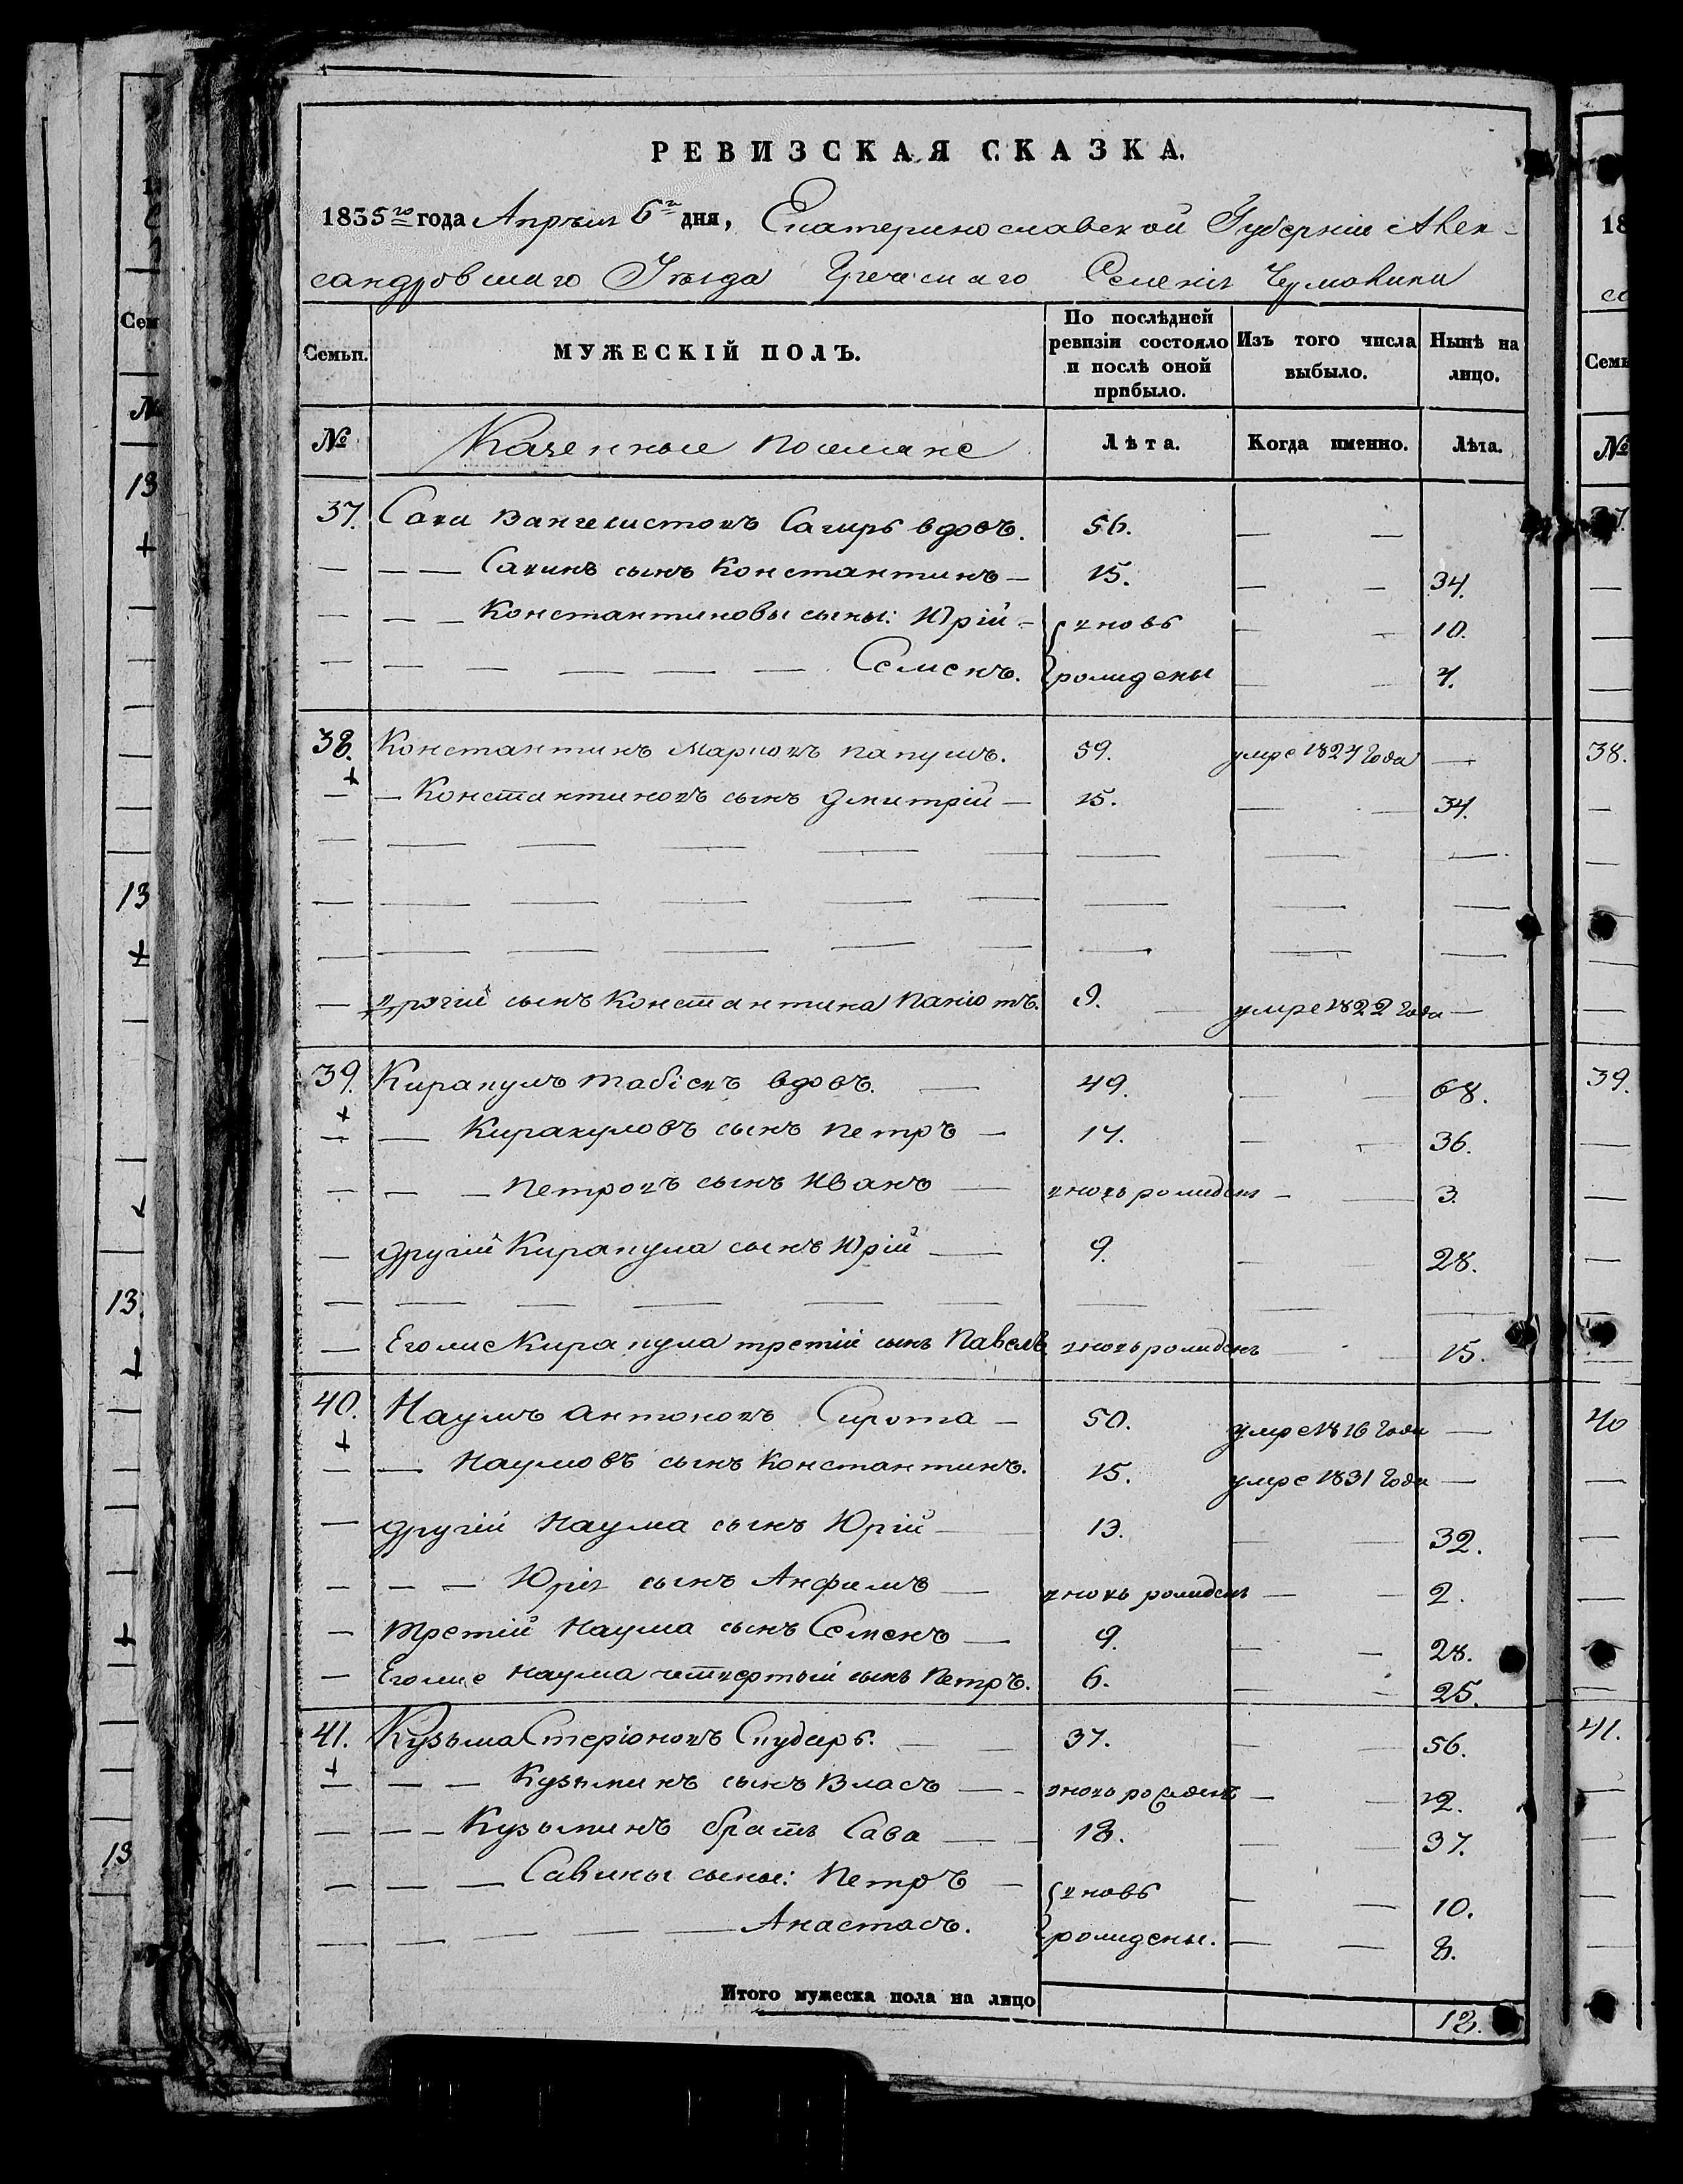 РЕВИЗСКАЯ СКАЗКА.
1835го года Апрѣля 6го дня, Екатеринославской Губерніи Алек-
сандровскаго Уѣзда Греческаго Селенія Чермалыка
Семьи. МУЖЕСКІЙ ПОЛЪ. По послѣдней ревизіи состояло и послѣ оной прибыло. Изъ того числа выбыло. Нынѣ на лицо.
№ Казенные поселяне Лѣта. Когда именно. Лѣта.
37. Сави Вангелистовъ Сагиръ вдовъ. 56. — —
— — — Савинъ сынъ Константинъ — 15. — — 34.
— — — Константиновы сыны: Юрій — вновь — — 10.
— — — — — — Семенъ. рожденны — — 7.
38. Константинъ Марковъ папушъ. 59. умре 1827 года —
— — Константиновъ сынъ Дмитрій — 15. — — 34.
— другій сынъ Константина Паніотъ. 9. — умре 1822 года —
39. Киракулъ вдовъ. — 49. — — 68.
— — Киракуловъ сынъ Петръ — 17. — — 36.
— — — Петровъ сынъ Иванъ — вновь рожденъ — — 3.
— другій Киракула сынъ Юрій — 9. — — 28.
— Егоже Киракула третій сынъ Павелъ вновь рожденъ — — 15.
40. Наумъ Антоновъ Сирота — 50. умре 1816 года —
— — Наумовъ сынъ Константинъ. 15. умре 1831 года —
— другій Наума сынъ Юрій — 13. — — 32.
— — — Юрія сынъ Анфимъ — вновь рожденъ — — 2.
— третій Наума сынъ Семенъ — 9. — — 28.
— Егоже Наума четвертый сынъ Петръ. 6. — — 25.
41. Кузьма Стеріоновъ Скударь. — — 37. — — 56.
— — — Кузьминъ сынъ Власъ — — вновь рожденъ — — 12.
— — — Кузьминъ братъ Сава — — 18. — — 37.
— — — Савины сыны: Петръ — вновь — — 10.
— — — — — Анастасъ. рожденны. — — 8.
Итого мужеска пола на лицо 18.